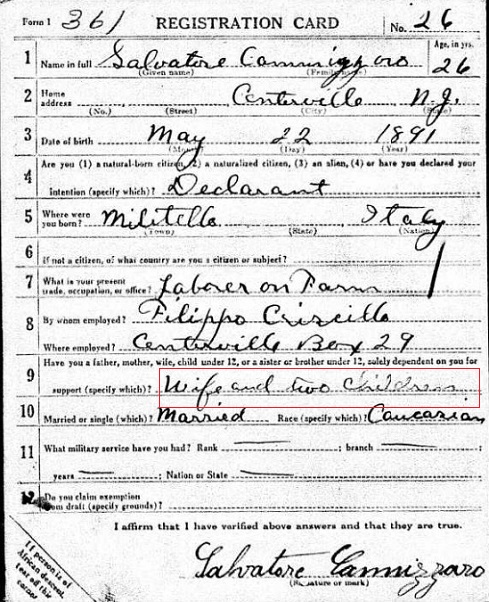 Form 1 361 REGISTRATION CARD No. 26
1 Name in full Salvatore Cannizzaro Age, in yrs. 26
(Given name) (Family name)
2 Home address Centerville N.J.
(No.) (Street) (City) (State)
3 Date of birth May 22 1891
(Month) (Day) (Year)
4 Are you (1) a natural-born citizen, (2) a naturalized citizen, (3) an alien, (4) or have you declared your
intention (specify which)? Declarant
5 Where were you born? Militello Italy
(Town) (State) (Nation)
6 If not a citizen, of what country are you a citizen or subject?
7 What is your present trade, occupation, or office? Laborer on Farm
8 By whom employed? Filippo Criscillo
Where employed? Centerville Box 29
9 Have you a father, mother, wife, child under 12, or a sister or brother under 12, solely dependent on you for
support (specify which)? Wife and two Children
10 Married or single (which)? Married Race (specify which)? Caucasian
11 What military service have you had? Rank ; branch ;
years ; Nation or State
12 Do you claim exemption from draft (specify grounds)?
I affirm that I have verified above answers and that they are true.
Salvatore Cannizzaro
(Signature or mark)
If person is of
African descent,
tear off this
corner